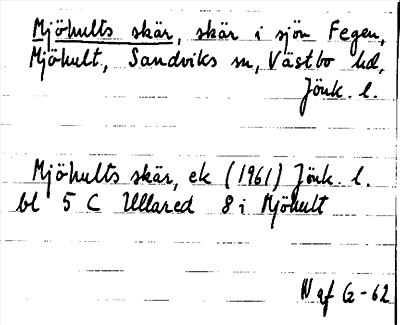 Mjöhults skär, skär i sjön Fegen,
Mjöhult, Sandviks sn, Västbo hd,
Jönk. l.
Mjöhults skär, ek (1961) Jönk. l.
bl 5 C Ullared 8 i Mjöhult